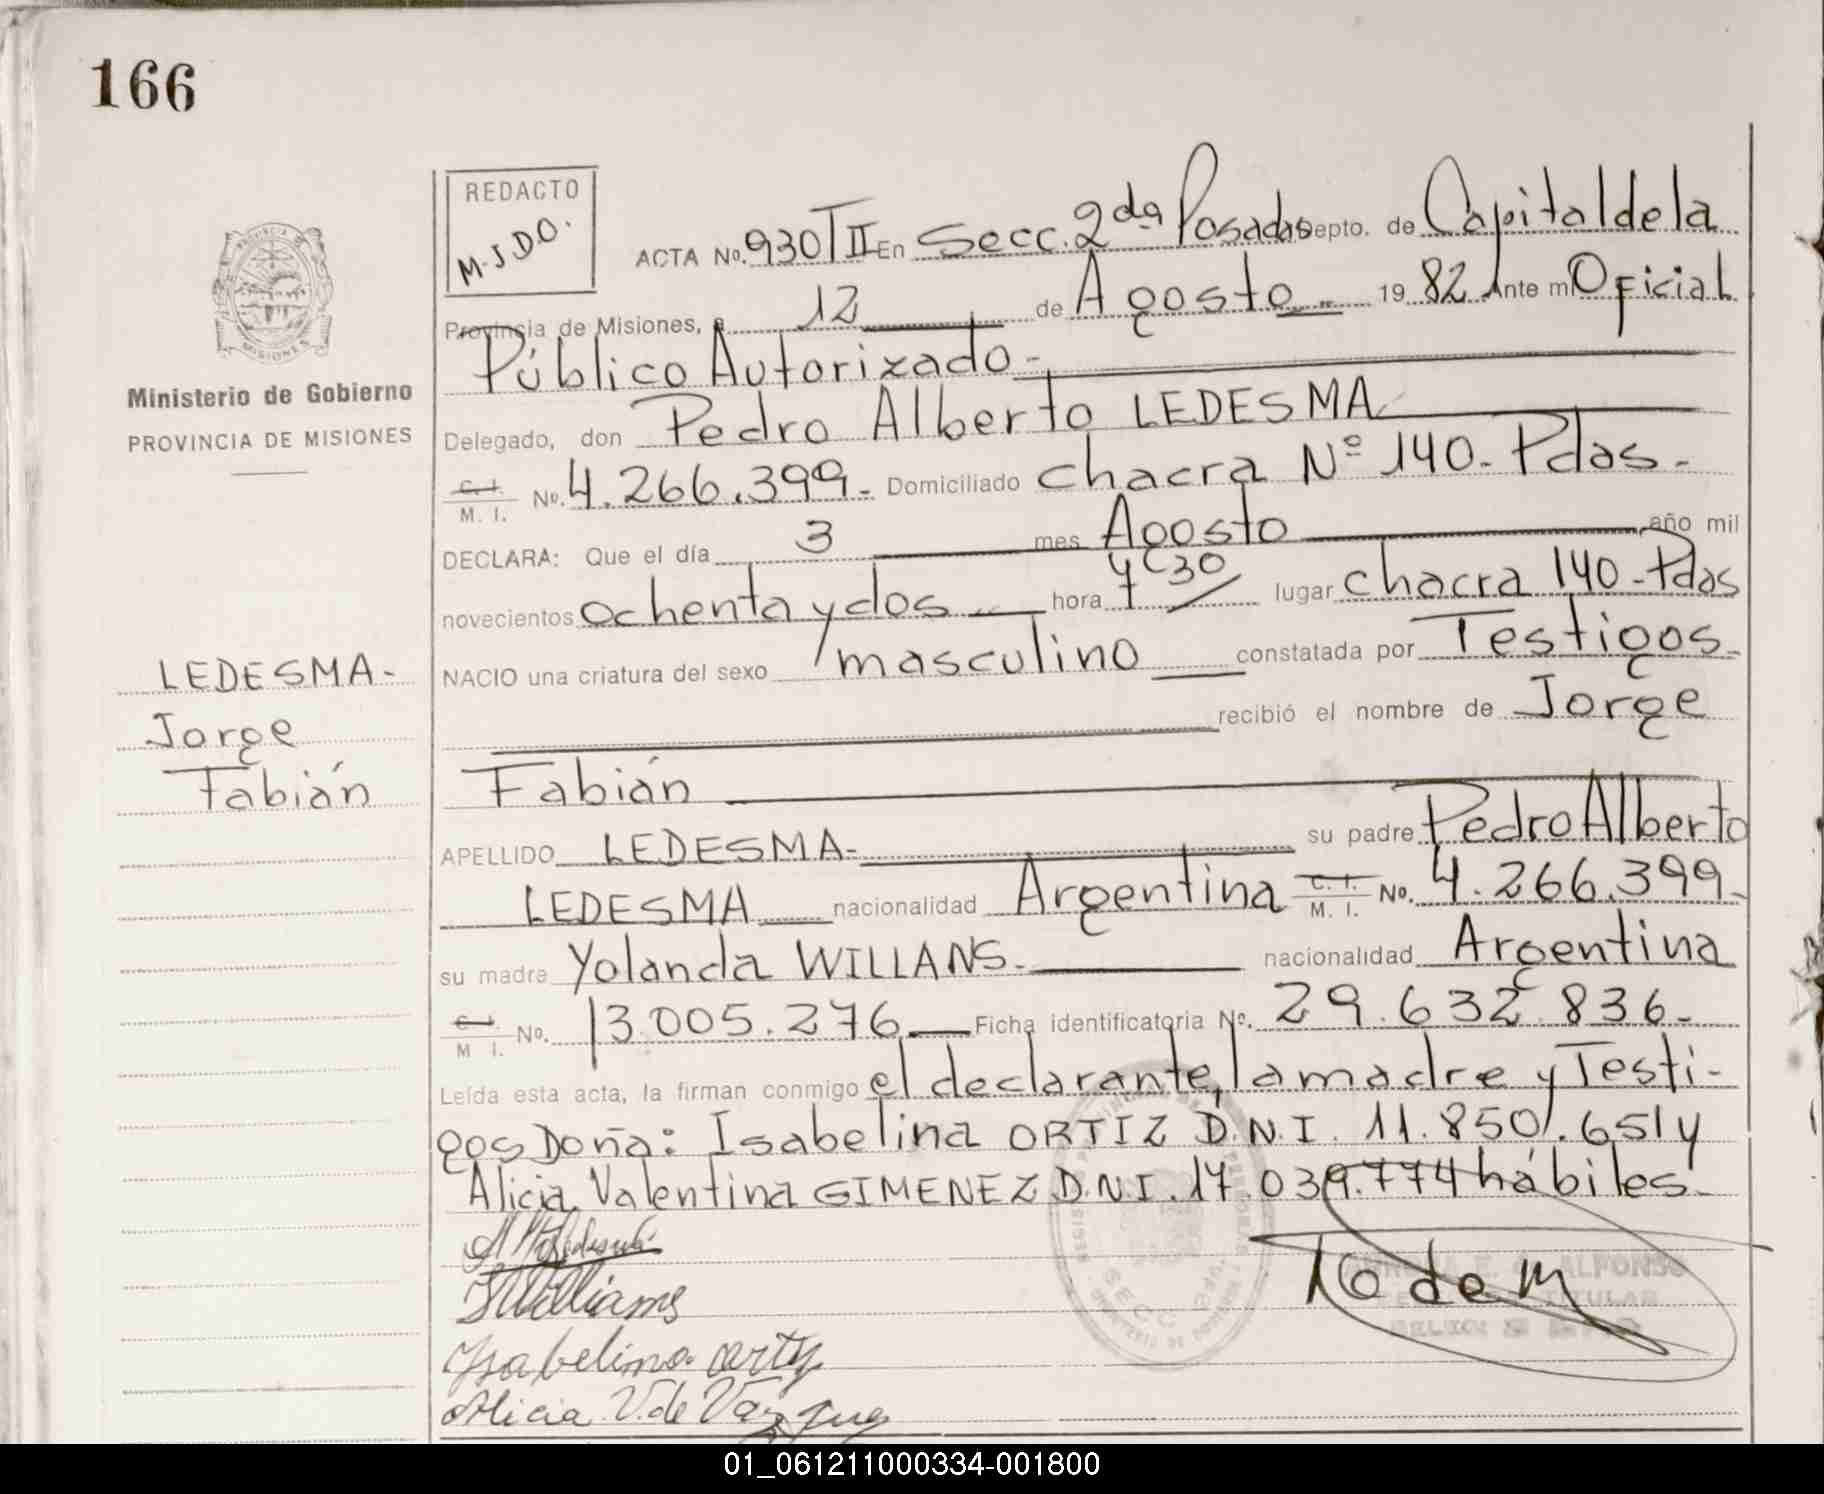 166
REDACTO
M.J.D.O.
ACTA No. 930 TII En Secc. 2da Posadas Depto. de Capital de la
Provincia de Misiones, a 12 de Agosto 19 82 Ante mi Oficial
Público Autorizado-
MISIONES
Ministerio de Gobierno
PROVINCIA DE MISIONES
Delegado, don Pedro Alberto LEDESMA
C. I. M. I. No. 4.266.399.- Domiciliado chacra Nº 140.- Pdas.-
DECLARA: Que el día 3 mes Agosto año mil
novecientos ochenta y dos hora 4 30 lugar chacra 140-Pdas
NACIO una criatura del sexo masculino constatada por Testigos
recibió el nombre de Jorge
Fabián
LEDESMA-
Jorge
Fabián
APELLIDO LEDESMA- su padre Pedro Alberto
LEDESMA nacionalidad Argentina C. I. M. I. No. 4.266.399.-
su madre Yolanda WILLANS.- nacionalidad Argentina
C. I. M I. No. 13.005.276. Ficha identificatoria No. 29.632.836.-
Leída esta acta, la firman conmigo el declarante, la madre y Testi-
gos Doña: Isabelina ORTIZ D.N.I. 11.850.651 y
Alicia Valentina GIMENEZ D.N.I. 17.039.774 hábiles.-
Williams
Isabelina
Alicia V. de
ALFONSO
TITULAR
01_061211000334-001800